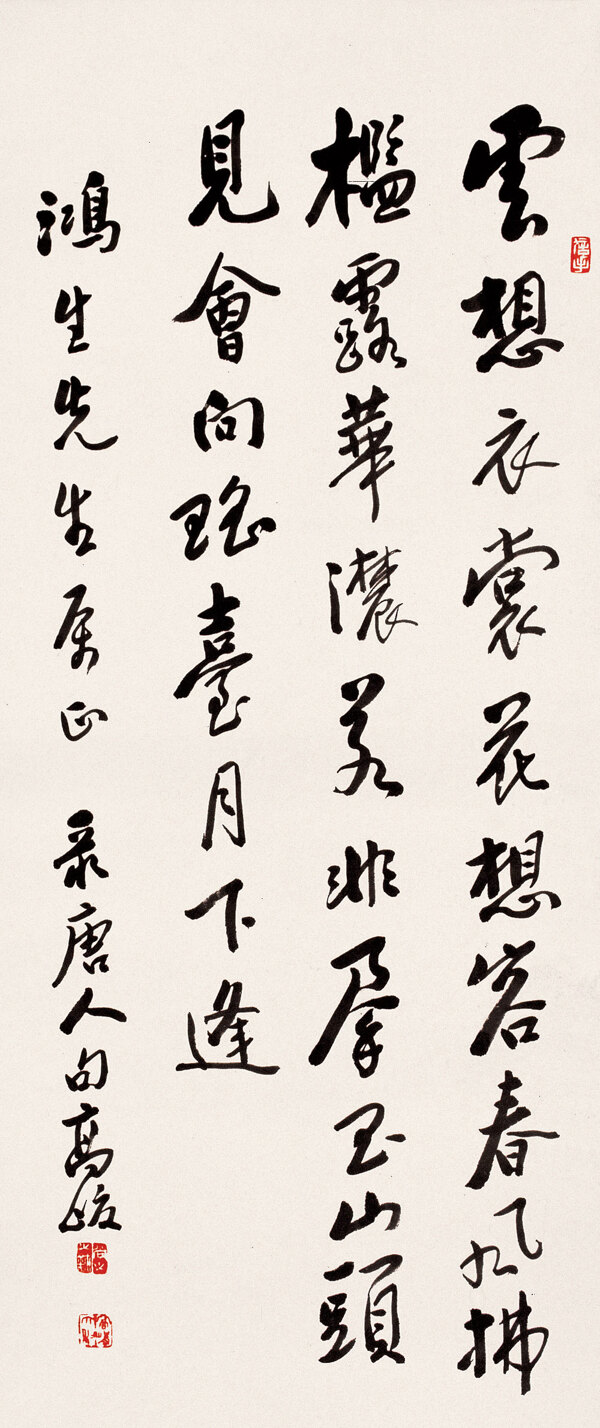 雲想衣裳花想容春風拂
檻露華濃若非羣玉山頭
見會向瑤臺月下逢
鴻生先生属正 录唐人句高峻